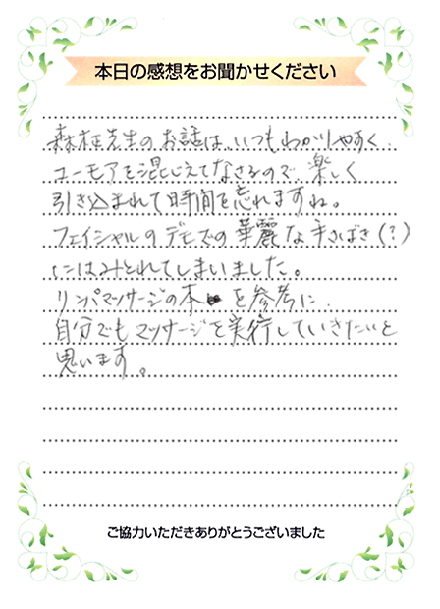 本日の感想をお聞かせください
森柾先生のお話は、いつもわかりやすく、
ユーモアを混じえてなさるので、楽しく
引き込まれて時間を忘れますね。
フェイシャルのデモでの華麗な手さばき(?)
にはみとれてしまいました。
リンパマッサージの本を参考に、
自分でもマッサージを実行していきたいと
思います。
ご協力いただきありがとうございました